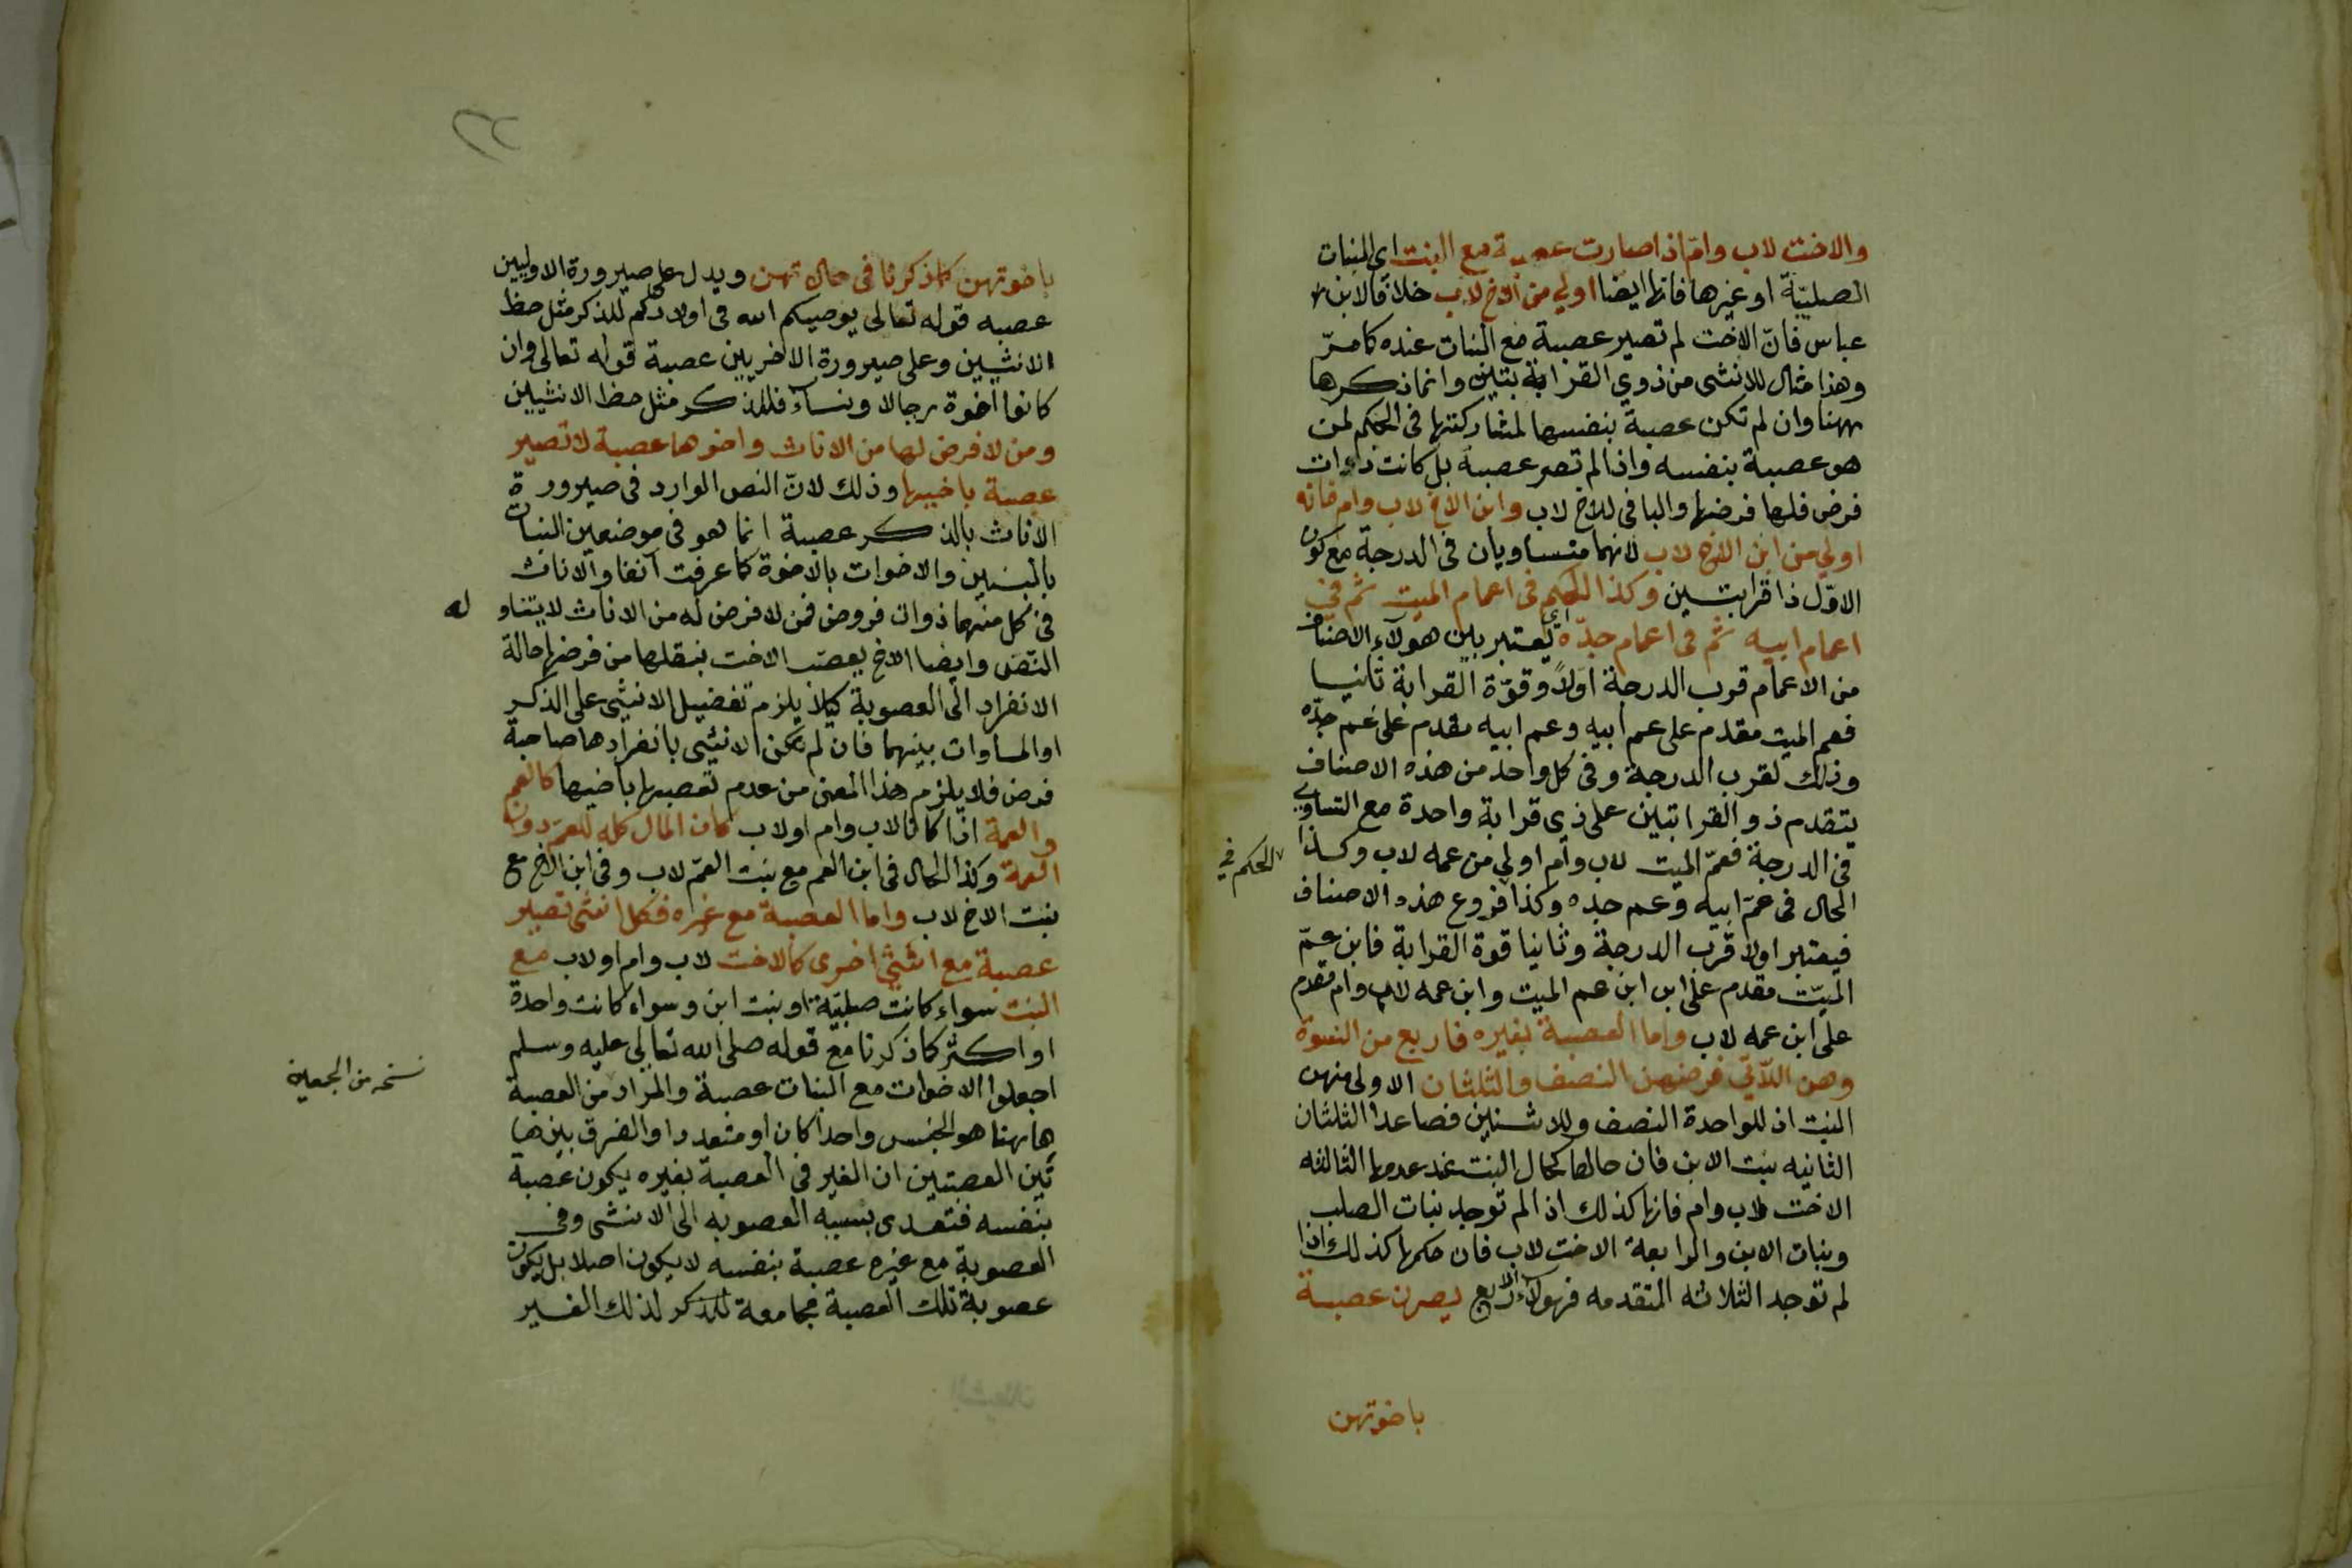 والاخت لاب وام اذا صارت عصبة مع البنت اى البنات
الصلبيّة او غيرها فانها ايضا اولى من الاخ لاب خلافا لابن
عباس فانّ الاخت لم تصير عصبة مع البنات عنده كما مرّ
وهذا مثال للانثى من ذوي القرابتين وانما ذكرها
ههنا وان لم تكن عصبة بنفسها لمشاركتها فى الحكم لمن
هو عصبة بنفسه واذا لم تصر عصبة بل كانت ذات
فرض فلها فرضها والباقى للاخ لاب وابن الاخ لاب وام فانه
اولي من ابن الاخ لاب لانهما متساويان فى الدرجة مع كون
الاوّل ذا قرابتين وكذا الحكم فى اعمام الميت ثم في
اعمام ابيه ثم فى اعمام جدّه اى يعتبر بين هولآء الاصناف
من الاعمام قرب الدرجة اولاً وقوّة القرابة ثانيا
فعم الميت مقدم على عم ابيه وعم ابيه مقدم على عم جدّه
وذلك لقرب الدرجة وفى كل واحد من هذه الاصناف
يتقدم ذو القرابتين على ذى قرابة واحدة مع التساوي
فى الدرجة فعمّ الميت لاب وام اولي من عمه لاب وكذا
الحكم في
الحال فى عمّ ابيه وعم جده وكذا فروع هذه الاصناف
فيعتبر اولا قرب الدرجة وثانيا قوة القرابة فابن عمّ
الميّت مقدم على ابن ابن عم الميت وابن عمه لاب وام مقدم
على ابن عمه لاب واما العصبة بغيره فاربع من النسوة
وهن اللآتي فرضهن النصف والثلثان الاولى منهن
البنت اذ للواحدة النصف وللاثنين فصاعدا الثلثان
الثانيه بنت الابن فان حالها كحال البنت عند عدمها الثالثه
الاخت لاب وام فانها كذلك اذا لم توجد بنات الصلب
وبنات الابن والرابعة الاخت لاب فان حكمها كذلك اذا
لم توجد الثلاثه المتقدمه فهولآء الاربع يصرن عصبة
باخوتهن
باخوتهن كما ذكرنا فى حالاتهن ويدل على صيرورة الاوليين
عصبه قوله تعالى يوصيكم الله فى اولادكم للذكر مثل حظ
الانثيين وعلى صيرورة الاخريين عصبة قوله تعالى وان
كانوا اخوة رجالا ونسآء فللذكر مثل حظ الانثيين
ومن لا فرض لها من الاناث واخوها عصبة لا تصير
عصبة باخيها وذلك لانّ النص الوارد فى صيرورة
الاناث بالذكر عصبة انما هو فى موضعين البنات
بالبنين والاخوات بالاخوة كما عرفت آنفا والاناث
فى كل منهما ذوات فروض فمن لا فرض له من الاناث لا يتناوله
النّص وايضا الاخ يعصّب الاخت بنقلها من فرضها حالة
الانفراد الى العصوبة كيلا يلزم تفضيل الانثى على الذكر
او المساوات بينهما فان لم تكن الانثى بانفرادها صاحبة
فرض فلا يلزم هذا المعنى من عدم تعصيبها باخيها كالعم
والعمة اذا كانا لاب وام او لاب كان المال كله للعمّ دون
العمة وكذا الحال فى ابن العم مع بنت العمّ لاب وفى ابن الاخ مع
بنت الاخ لاب واما العصبة مع غيره فكل انثى تصير
عصبة مع انثى اخرى كالاخت لاب وام او لاب مع
البنت سواء كانت صلبيّة او بنت ابن وسواء كانت واحدة
او اكثر كما ذكرنا مع قوله صلى الله تعالى عليه وسلم
اجعلوا الاخوات مع البنات عصبة والمراد من العصبة
نسخه من الجمعين
هاهنا هو الجنس واحدا كان او متعددا والفرق بين ها
تين العصبتين ان الغير فى العصبة بغيره يكون عصبة
بنفسه فتتعدى بسببه العصوبه الى الانثى وفى
العصوبة مع غيره عصبة بنفسه لا يكون اصلا بل يكون
عصوبة تلك العصبة مجامعة للذكر لذلك الغير